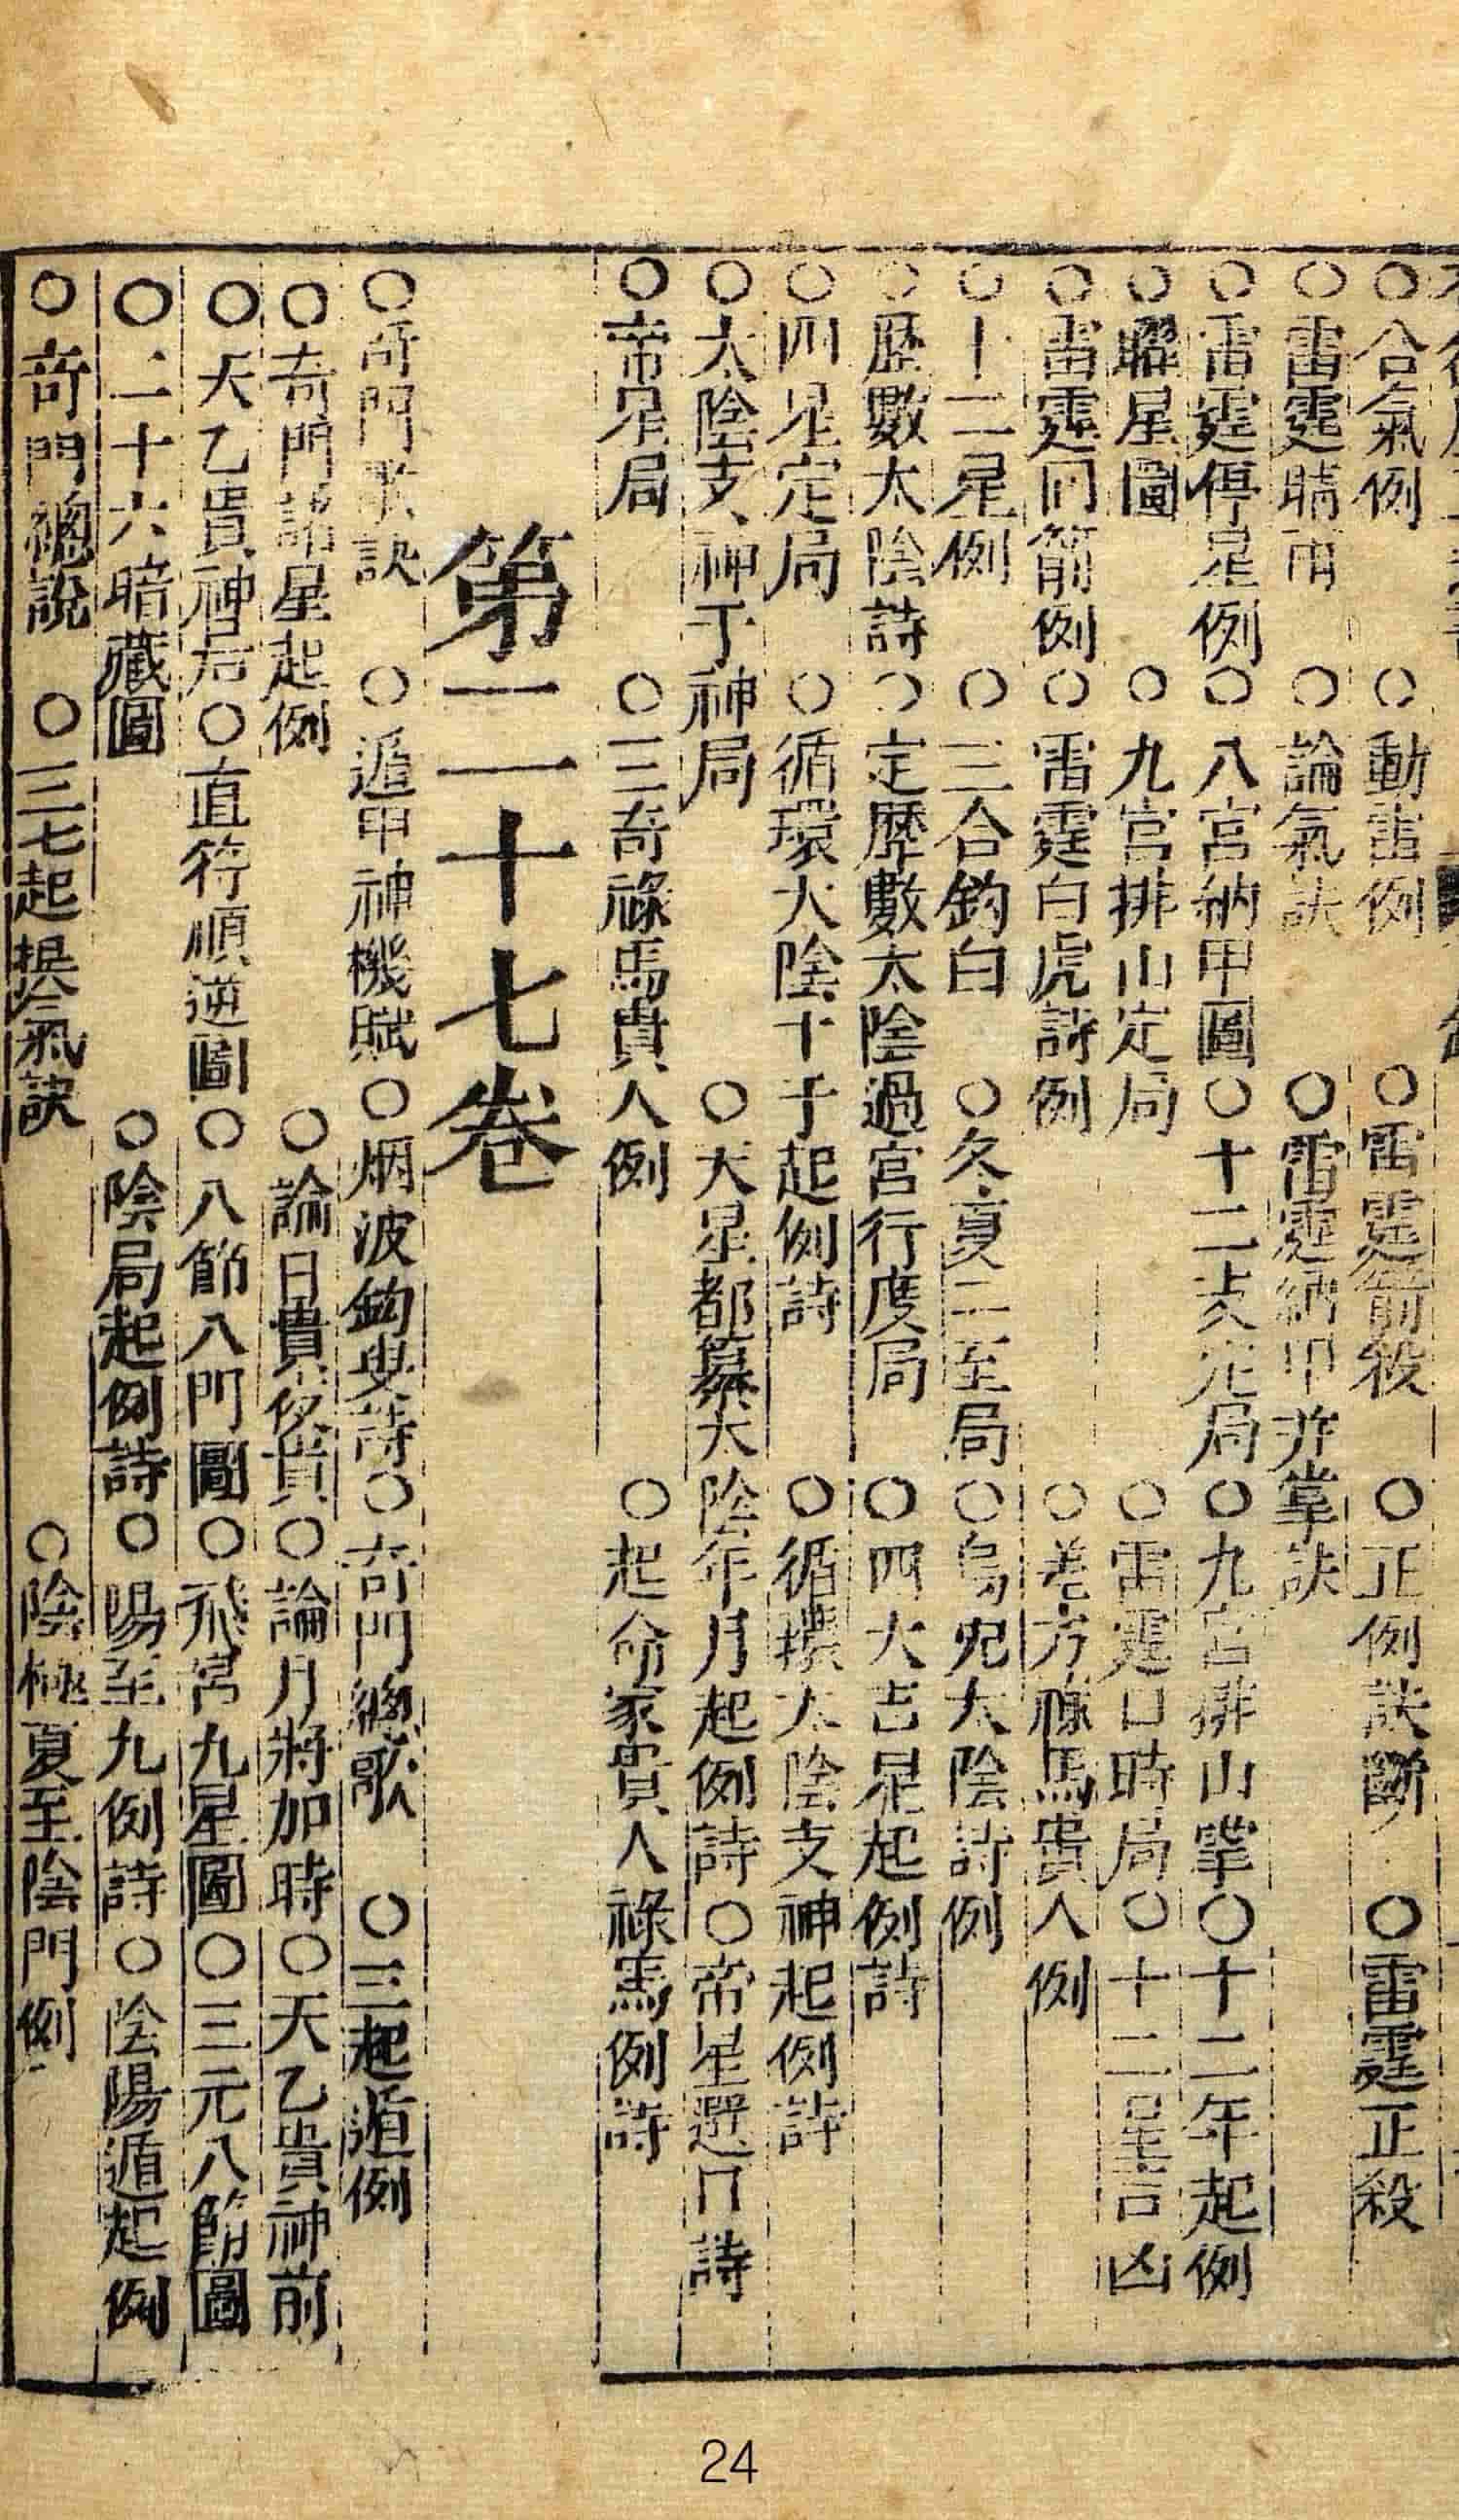 ○合氣例 ○動雷例 ○雷霆箭殺 ○正例訣斷 ○雷霆正殺
○雷霆晴雨 ○論氣訣 ○雷霆納甲并掌訣
○雷霆停星例 ○八宮納甲圖 ○十二支定局 ○九宮排山掌 ○十二年起例
○躔星圖 ○九宮排山定局 ○雷霆日時局 ○十二星吉凶
○雷霆同箭例 ○雷霆白虎詩例 ○差方祿馬貴人例
○十二星例 ○三合鈎白 ○冬夏二至局 ○烏兔太陰詩例
○歷數太陰詩 ○定歷數太陰過宮行度局 ○四大吉星起例詩
○四星定局 ○循環太陰十干起例詩 ○循環太陰支神起例詩
○太陰支神干神局 ○天星都纂太陰年月起例詩 ○帝星選日詩
○帝星局 ○三奇祿馬貴人例 ○起命家貴人祿馬例詩
第二十七卷
○奇門歌訣 ○遁甲神機賦 ○烟波鈎叟詩 ○奇門總歌 ○三起遁例
○奇門諸星起例 ○論日貴夜貴 ○論月將加時 ○天乙貴神前
○天乙貴神后 ○直符順逆圖 ○八節八門圖 ○飛宮九星圖 ○三元八節圖
○二十六暗藏圖 ○陰局起例詩 ○陽至九例詩 ○陰陽遁起例
○奇門總說 ○三七起提氣訣 ○陰極夏至陰門例
24